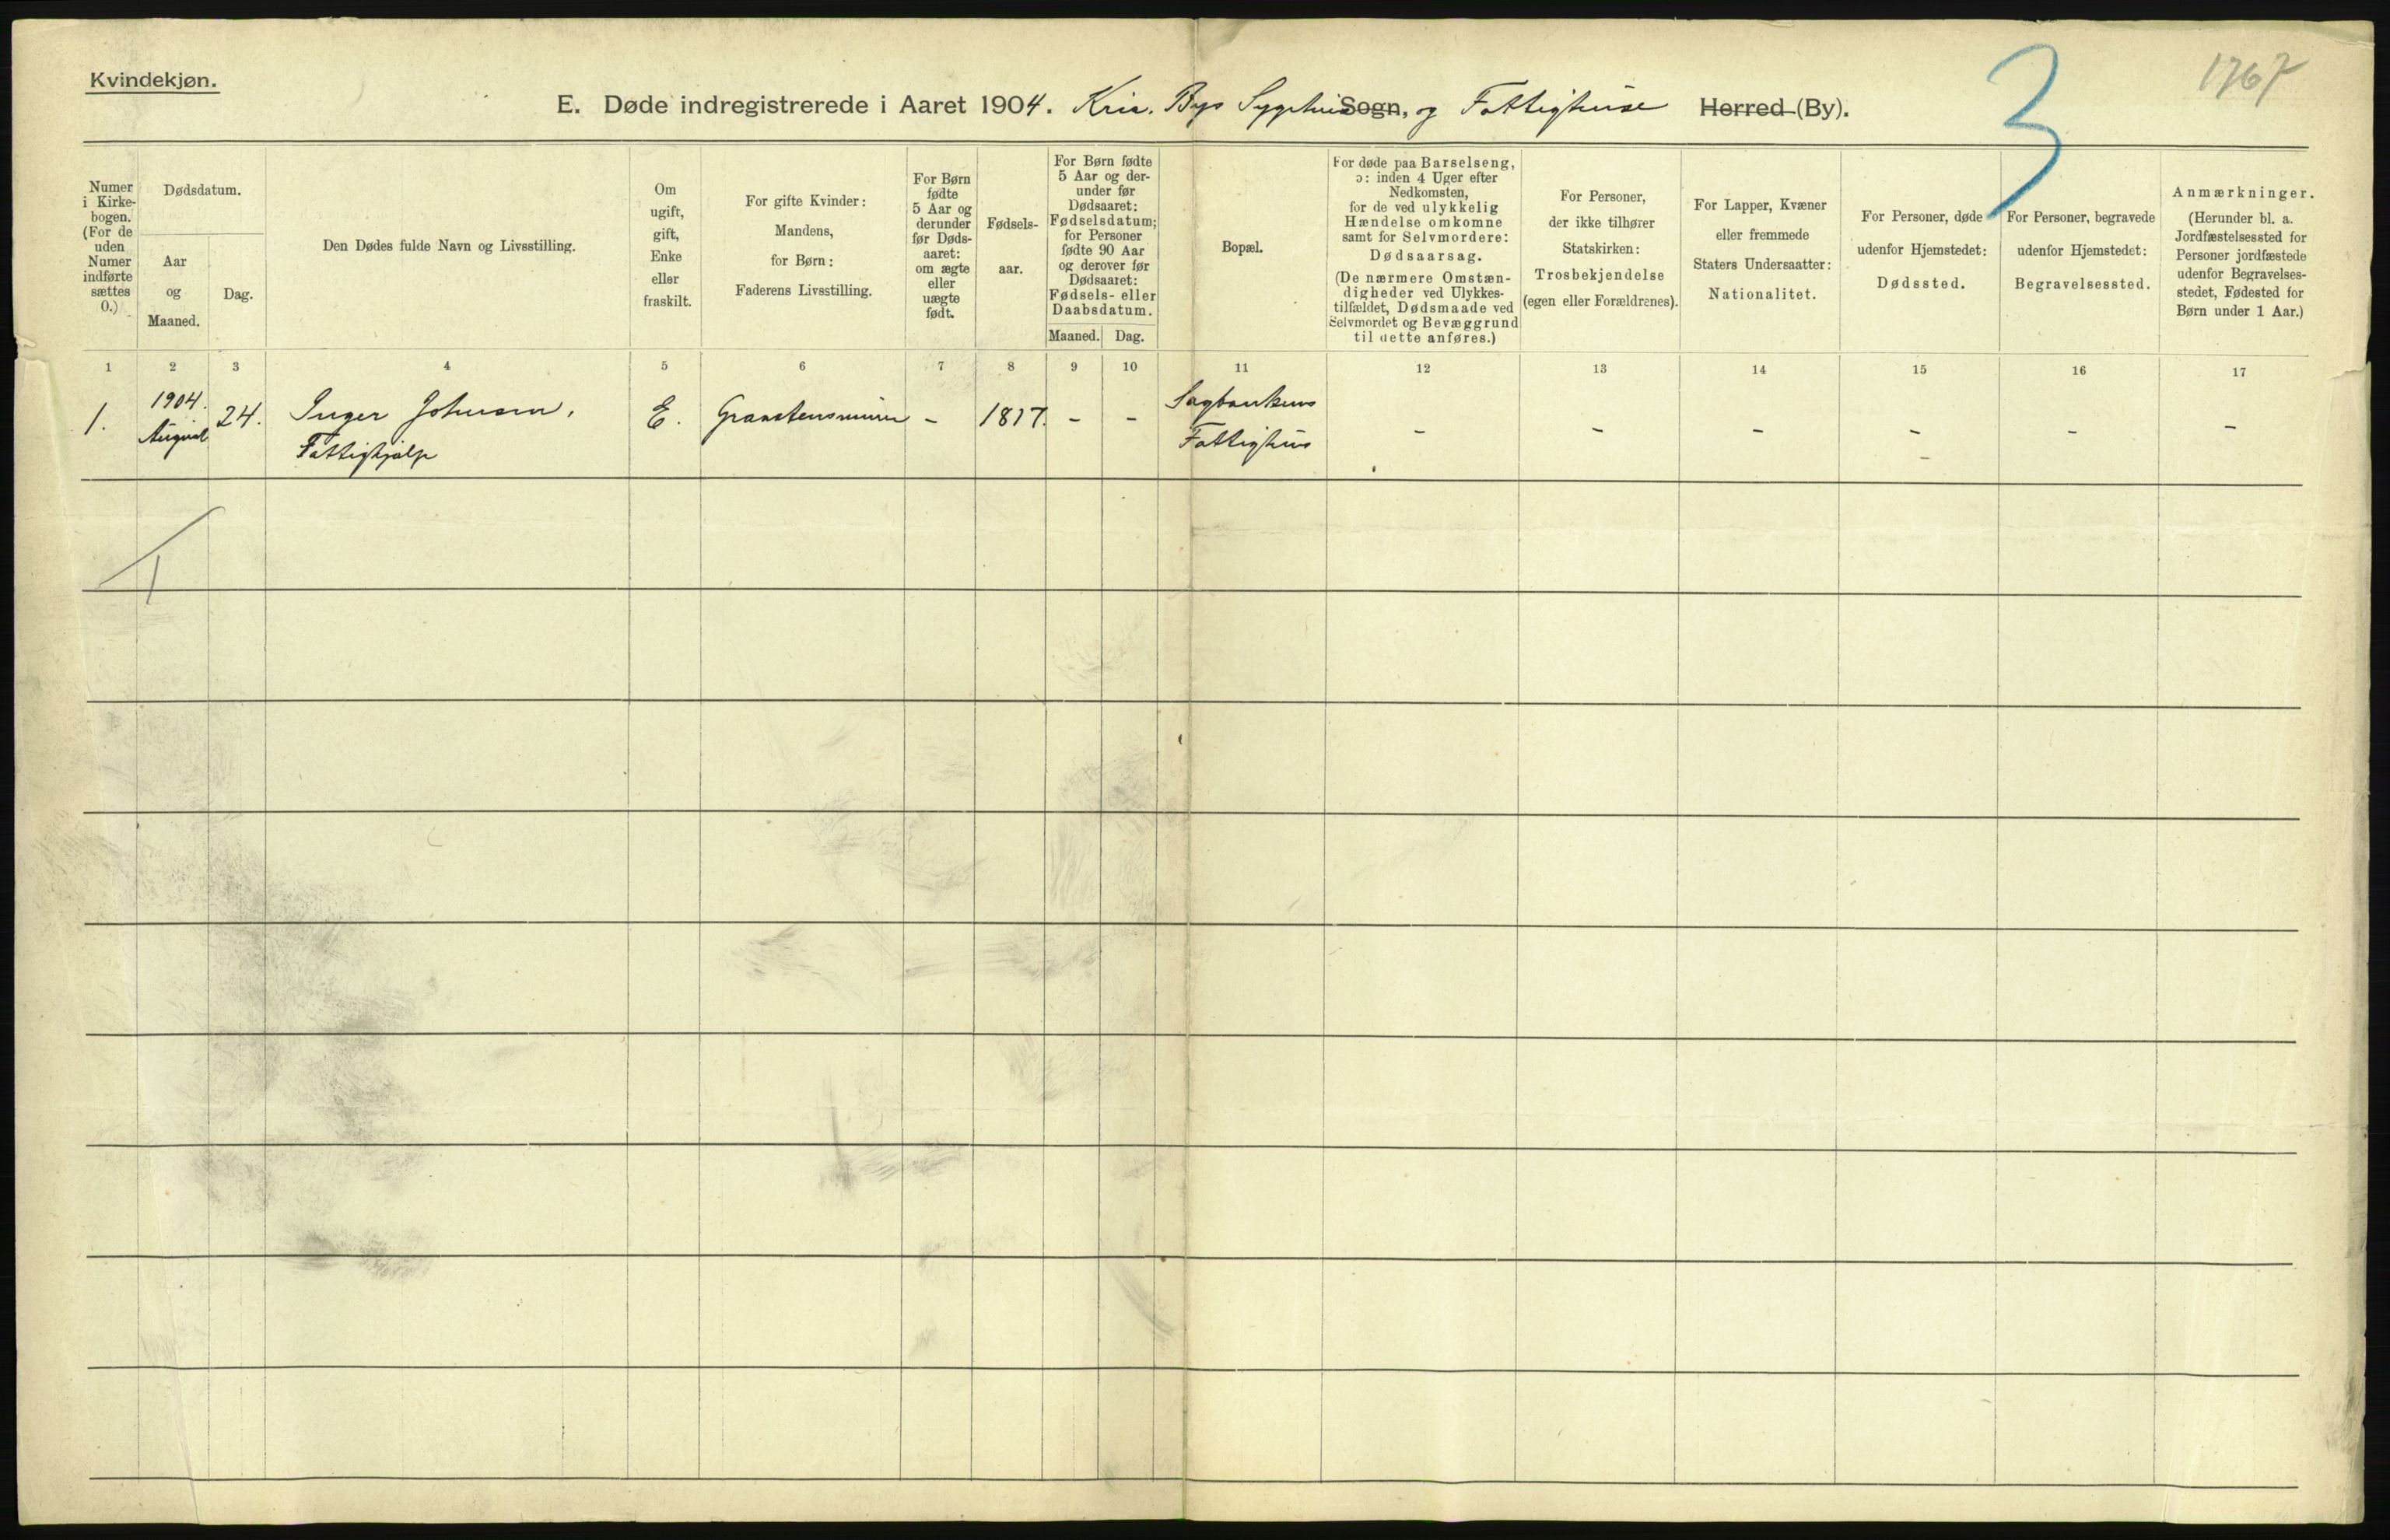 Kvindekjøn.
1767
3
E. Døde indregistrerede i Aaret 1904. Kria. Bys Sygehus Sogn, og Fattighuse Herred (By).
Numer
i Kirke-
bogen.
(For de
uden
Numer
indførte
sættes
0.)
Dødsdatum.
Aar
og
Maaned.
Dag.
Den Dødes fulde Navn og Livsstilling.
Om
ugift,
gift,
Enke
eller
fraskilt.
For gifte Kvinder:
Mandens,
for Børn:
Faderens Livsstilling.
For Børn
fødte
5 Aar og
derunder
før Døds-
aaret:
om ægte
eller
uægte
født.
Fødsels-
aar.
For Børn fødte
5 Aar og der-
under før
Dødsaaret:
Fødselsdatum;
for Personer
fødte 90 Aar
og derover før
Dødsaaret:
Fødsels- eller
Daabsdatum.
Maaned. Dag.
Bopæl.
For døde paa Barselseng,
ɔ: inden 4 Uger efter
Nedkomsten,
for de ved ulykkelig
Hændelse omkomne
samt for Selvmordere:
Dødsaarsag.
(De nærmere Omstæn-
digheder ved Ulykkes-
tilfældet, Dødsmaade ved
Selvmordet og Bevæggrund
til dette anføres.)
For Personer,
der ikke tilhører
Statskirken:
Trosbekjendelse
(egen eller Forældrenes).
For Lapper, Kvæner
eller fremmede
Staters Undersaatter:
Nationalitet.
For Personer, døde
udenfor Hjemstedet:
Dødssted.
For Personer, begravede
udenfor Hjemstedet:
Begravelsessted.
Anmærkninger.
(Herunder bl. a.
Jordfæstelsessted for
Personer jordfæstede
udenfor Begravelses-
stedet, Fødested for
Børn under 1 Aar.)
1 2 3 4 5 6 7 8 9 10 11 12 13 14 15 16 17
1. 1904. August 24. Inger Johnsen, E. - 1817. - - - - - - - -
Fattighjælp
Sagbankens
Fattighus
1